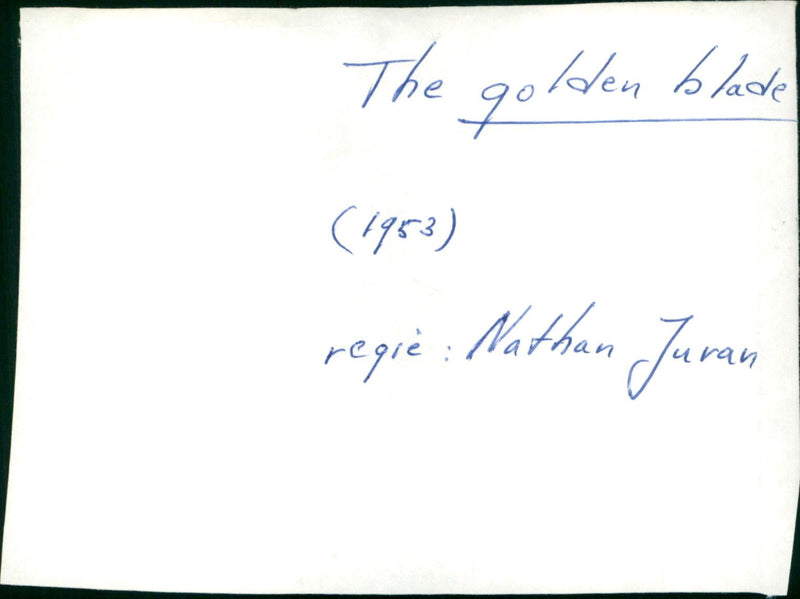 The golden blade
(1953)
regie : Nathan Juran